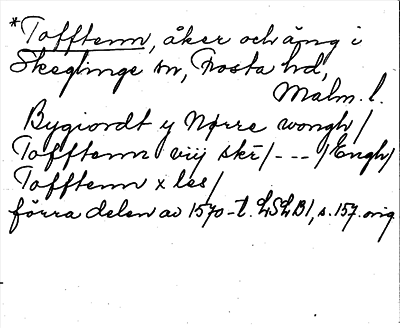 *Tofftenn, åker och äng i
Skeglinge sn, Frosta hd,
Malm. l.
Bygiordt y Nørre wongh/
Tofftenn viij skr/---/Engh/
Tofftenn x les/
förra delen av 1570-t. LSLB1, s. 157. orig